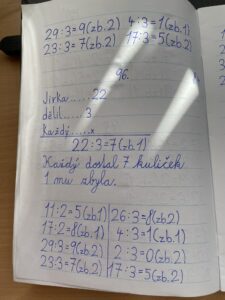 29:3=9(zb.2) 4:3=1(zb.1)
23:3=7(zb.2) 17:3=5(zb.2)
96.
Jirka.....22
dělil.....3
Každý.....x
22:3=7(zb.1)
Každý dostal 7 kuliček
1 mu zbyla.
11:2=5(zb.1) 26:3=8(zb.2)
17:2=8(zb.1) 4:3=1(zb.1)
29:3=9(zb.2) 2:3=0(zb.2)
23:3=7(zb.2) 17:3=5(zb.2)